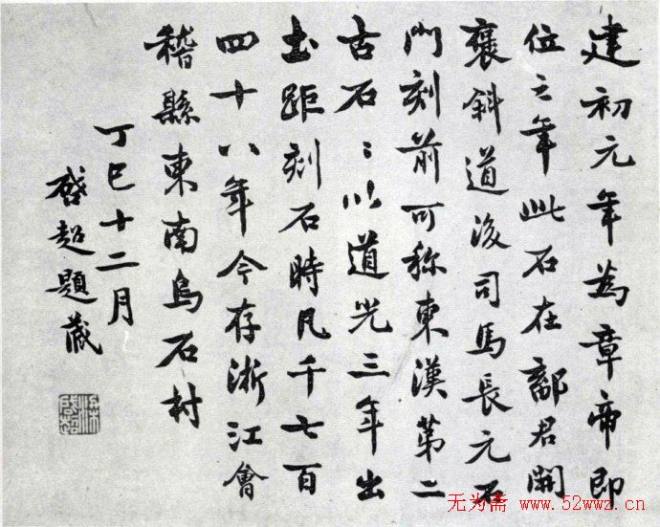 建初元年為章帝即
位之年此石在鄐君開
褒斜道後司馬長元石
門刻前可称東漢第二
古石〻以道光三年出
土距刻石時凡千七百
四十八年今存浙江會
稽縣東南烏石村
丁巳十二月
啓超題藏
无为斋 www.52wwz.cn